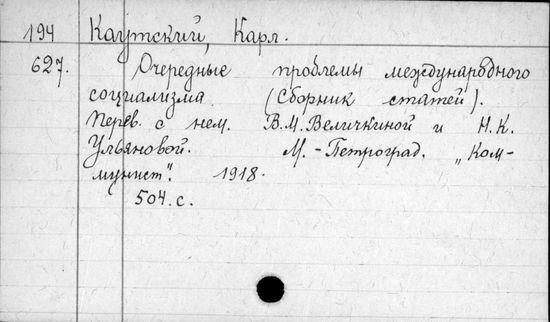 194 Каутский, Карл.
627. Очередные проблемы международного
социализма (Сборник статей).
Перев. с нем. В.М.Величкиной и Н.К.
Ульяновой. М.-Петроград, „Ком-
мунист". 1918.
504.с.